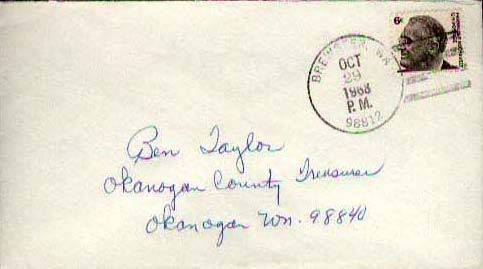 6¢
BREWSTER, WA
OCT
29
1968
P.M.
98812
Ben Taylor
Okanogan County Treasurer
Okanogan Wn. 98840